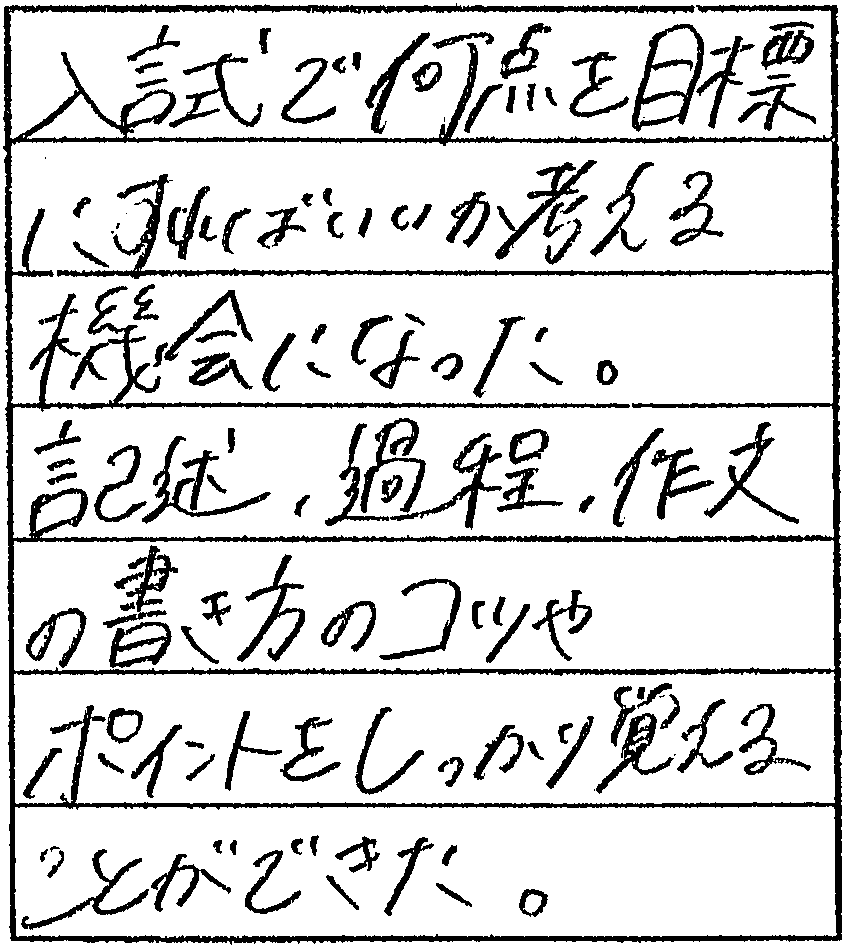 入試で何点を目標
にすればいいか考える
機会になった。
記述、過程、作文
の書き方のコツや
ポイントをしっかり覚える
ことができた。